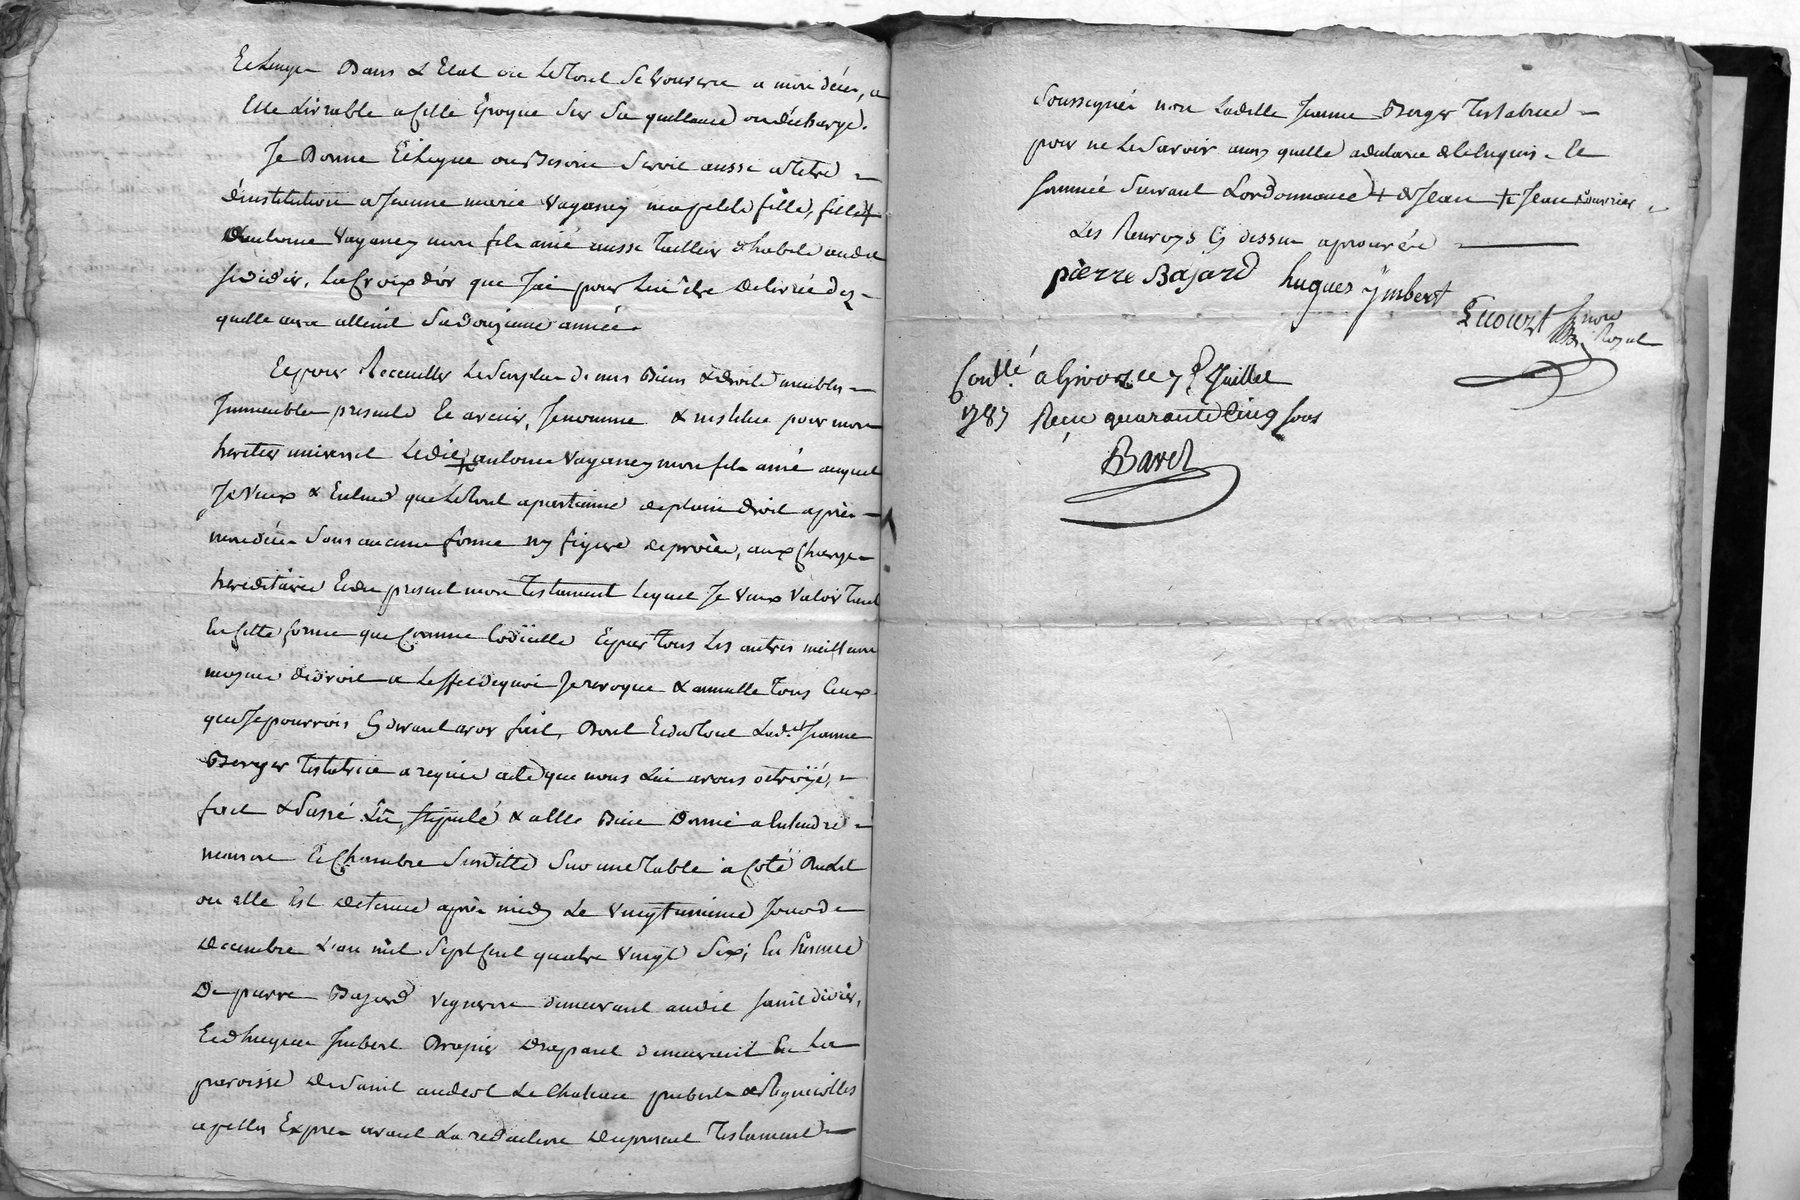 Et linge Dans L Etat où le tout se trouvera a mon décès, a
Elle livrable a cette Epoque sur sa quittance ou décharge.
Je Donne Et legue ou Besoin seroit aussi a titre
d'institution a Jeanne marie Vaganey ma petite fille, fille +
D'antoine Vaganey mon fils ainé aussi tailleur d'habits audit
st didier, la Croix d'or que J'ai pour lui être delivrée dez
quelle aura atteint sa douzieme année.
Et pour Recueillir le surplus de mes Biens & droits meubles
Immeubles presents Et avenir, Je nomme & institue pour mon
heritier universel ledit + antoine Vaganey mon fils ainé auquel
Je Veux & Entend que le tout apartienne de plain droit après
mon décès sans aucune forme ny figure de procès, aux Charges
hereditaires Et du present mon Testament lequel Je Veux Valoir tant
En Cette forme que Comme Codicille Et par tous les autres meilleurs
moyens de droit a l'effet de quoi Je revoque & annulle tous Ceux
que Je pourrois Cy devant avoir fait, Dont Et du tout lad.te Jeanne
Berger Testatrice a requis acte que nous lui avons octroyé,
fait & Passé Lû, stipulé & a Elle Bien Donné a Entendre
maison Et Chambre susditte sur une table à Coté du Lit
ou elle Est detenue après midy le Vingt unieme Jour de
Decembre L'an mil sept Cent quatre Vingt six; En presence
De pierre Bajard Vigneron demeurant audit saint didier,
Et d'hugues Imbert Drapier Drapant demeurant En la
paroisse de saint andeol le Chateau presents & Requis
apellés Exprès avant la redaction du present Testament
soussignés non ladite Jeanne Berger Testatrice
pour ne le savoir ainsy quelle a declaré de ce Enquise Et
sommée suivant L'ordonnance + de Jean + Jean
Les Renvoys Cy dessus aprouvés
pierre Bajard hugues ymbert
nore Royal
Con.llé a Givors le 7 Juillet
1787 Reçu quarante Cinq sous
Baret